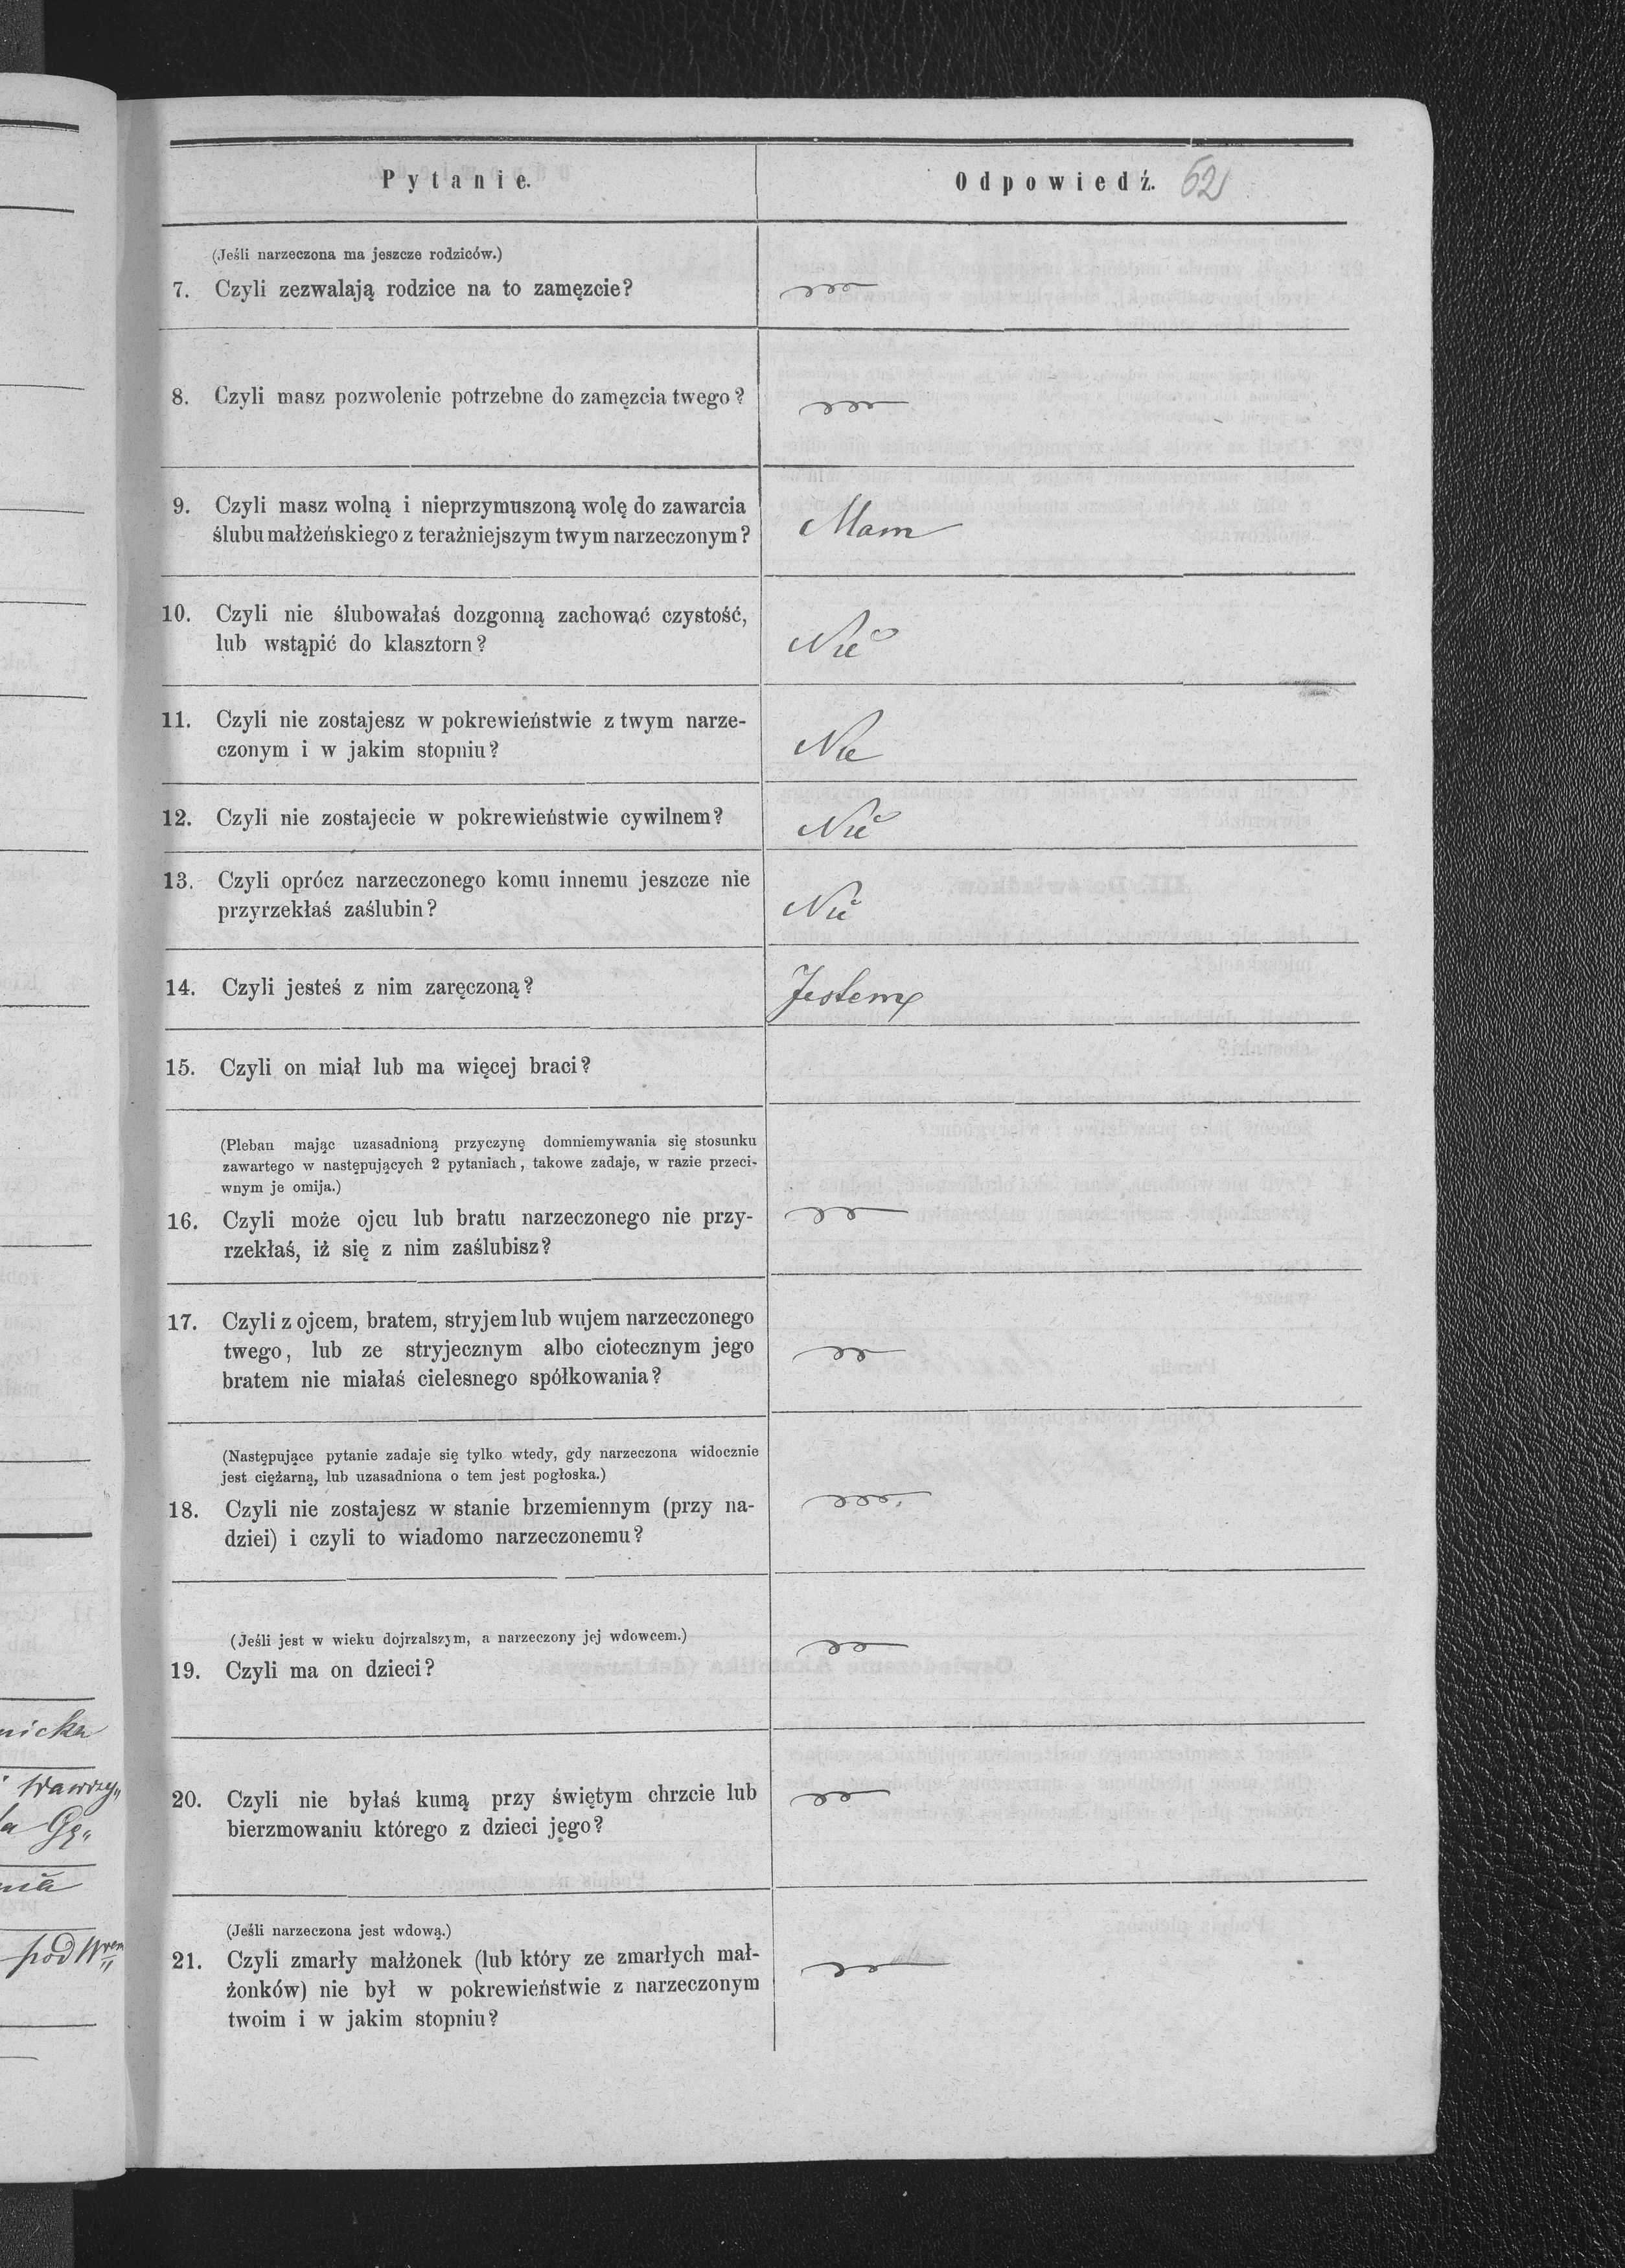 Pytanie.
Odpowiedź. 62
(Jeśli narzeczona ma jeszcze rodziców.)
7. Czyli zezwalają rodzice na to zamęzcie?
8. Czyli masz pozwolenie potrzebne do zamęzcia twego?
9. Czyli masz wolną i nieprzymuszoną wolę do zawarcia
ślubu małżeńskiego z teraźniejszym twym narzeczonym?
Mam
10. Czyli nie ślubowałaś dozgonną zachować czystość,
lub wstąpić do klasztorn?
Nie
11. Czyli nie zostajesz w pokrewieństwie z twym narze-
czonym i w jakim stopniu?
Nie
12. Czyli nie zostajecie w pokrewieństwie cywilnem?
Nie
13. Czyli oprócz narzeczonego komu innemu jeszcze nie
przyrzekłaś zaślubin?
Nie
14. Czyli jesteś z nim zaręczoną?
Jestem
15. Czyli on miał lub ma więcej braci?
(Pleban mając uzasadnioną przyczynę domniemywania się stosunku
zawartego w następujących 2 pytaniach, takowe zadaje, w razie przeci-
wnym je omija.)
16. Czyli może ojcu lub bratu narzeczonego nie przy-
rzekłaś, iż się z nim zaślubisz?
17. Czyli z ojcem, bratem, stryjem lub wujem narzeczonego
twego, lub ze stryjecznym albo ciotecznym jego
bratem nie miałaś cielesnego spółkowania?
(Następujące pytanie zadaje się tylko wtedy, gdy narzeczona widocznie
jest ciężarną, lub uzasadniona o tem jest pogłoska.)
18. Czyli nie zostajesz w stanie brzemiennym (przy na-
dziei) i czyli to wiadomo narzeczonemu?
(Jeśli jest w wieku dojrzalszym, a narzeczony jej wdowcem.)
19. Czyli ma on dzieci?
20. Czyli nie byłaś kumą przy świętym chrzcie lub
bierzmowaniu którego z dzieci jego?
(Jeśli narzeczona jest wdową.)
21. Czyli zmarły małżonek (lub który ze zmarłych mał-
żonków) nie był w pokrewieństwie z narzeczonym
twoim i w jakim stopniu?